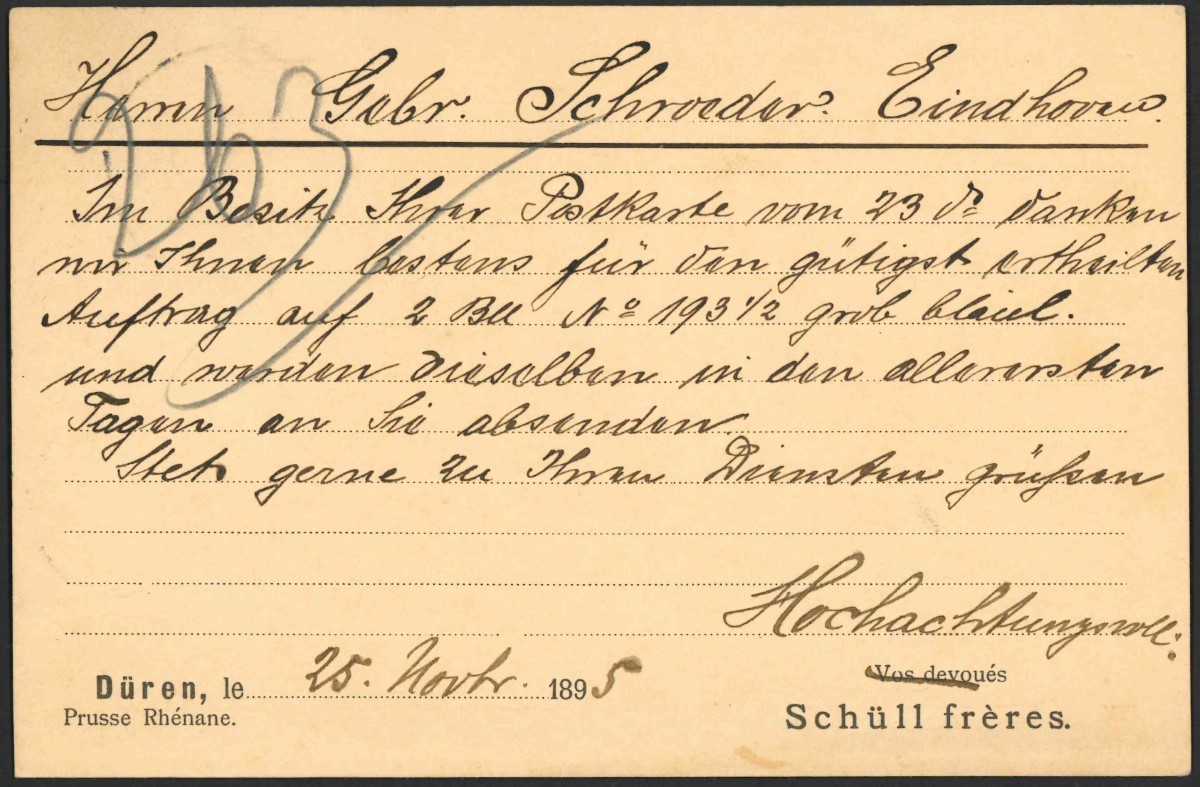 Herren Gebr. Schroeder. Eindhoven.
Im Besitz Ihrer Postkarte vom 23 do danken
wir Ihnen bestens für den gütigst ertheilten
Auftrag auf 2 Bll No 193 1/2 grob
und werden dieselben in den allerersten
Tagen an Sie absenden.
Stets gerne zu Ihren Diensten grüßen
Hochachtungsvoll:
Düren, le 25. Novbr. 1895
Prusse Rhénane.
Vos devoués
Schüll frères.